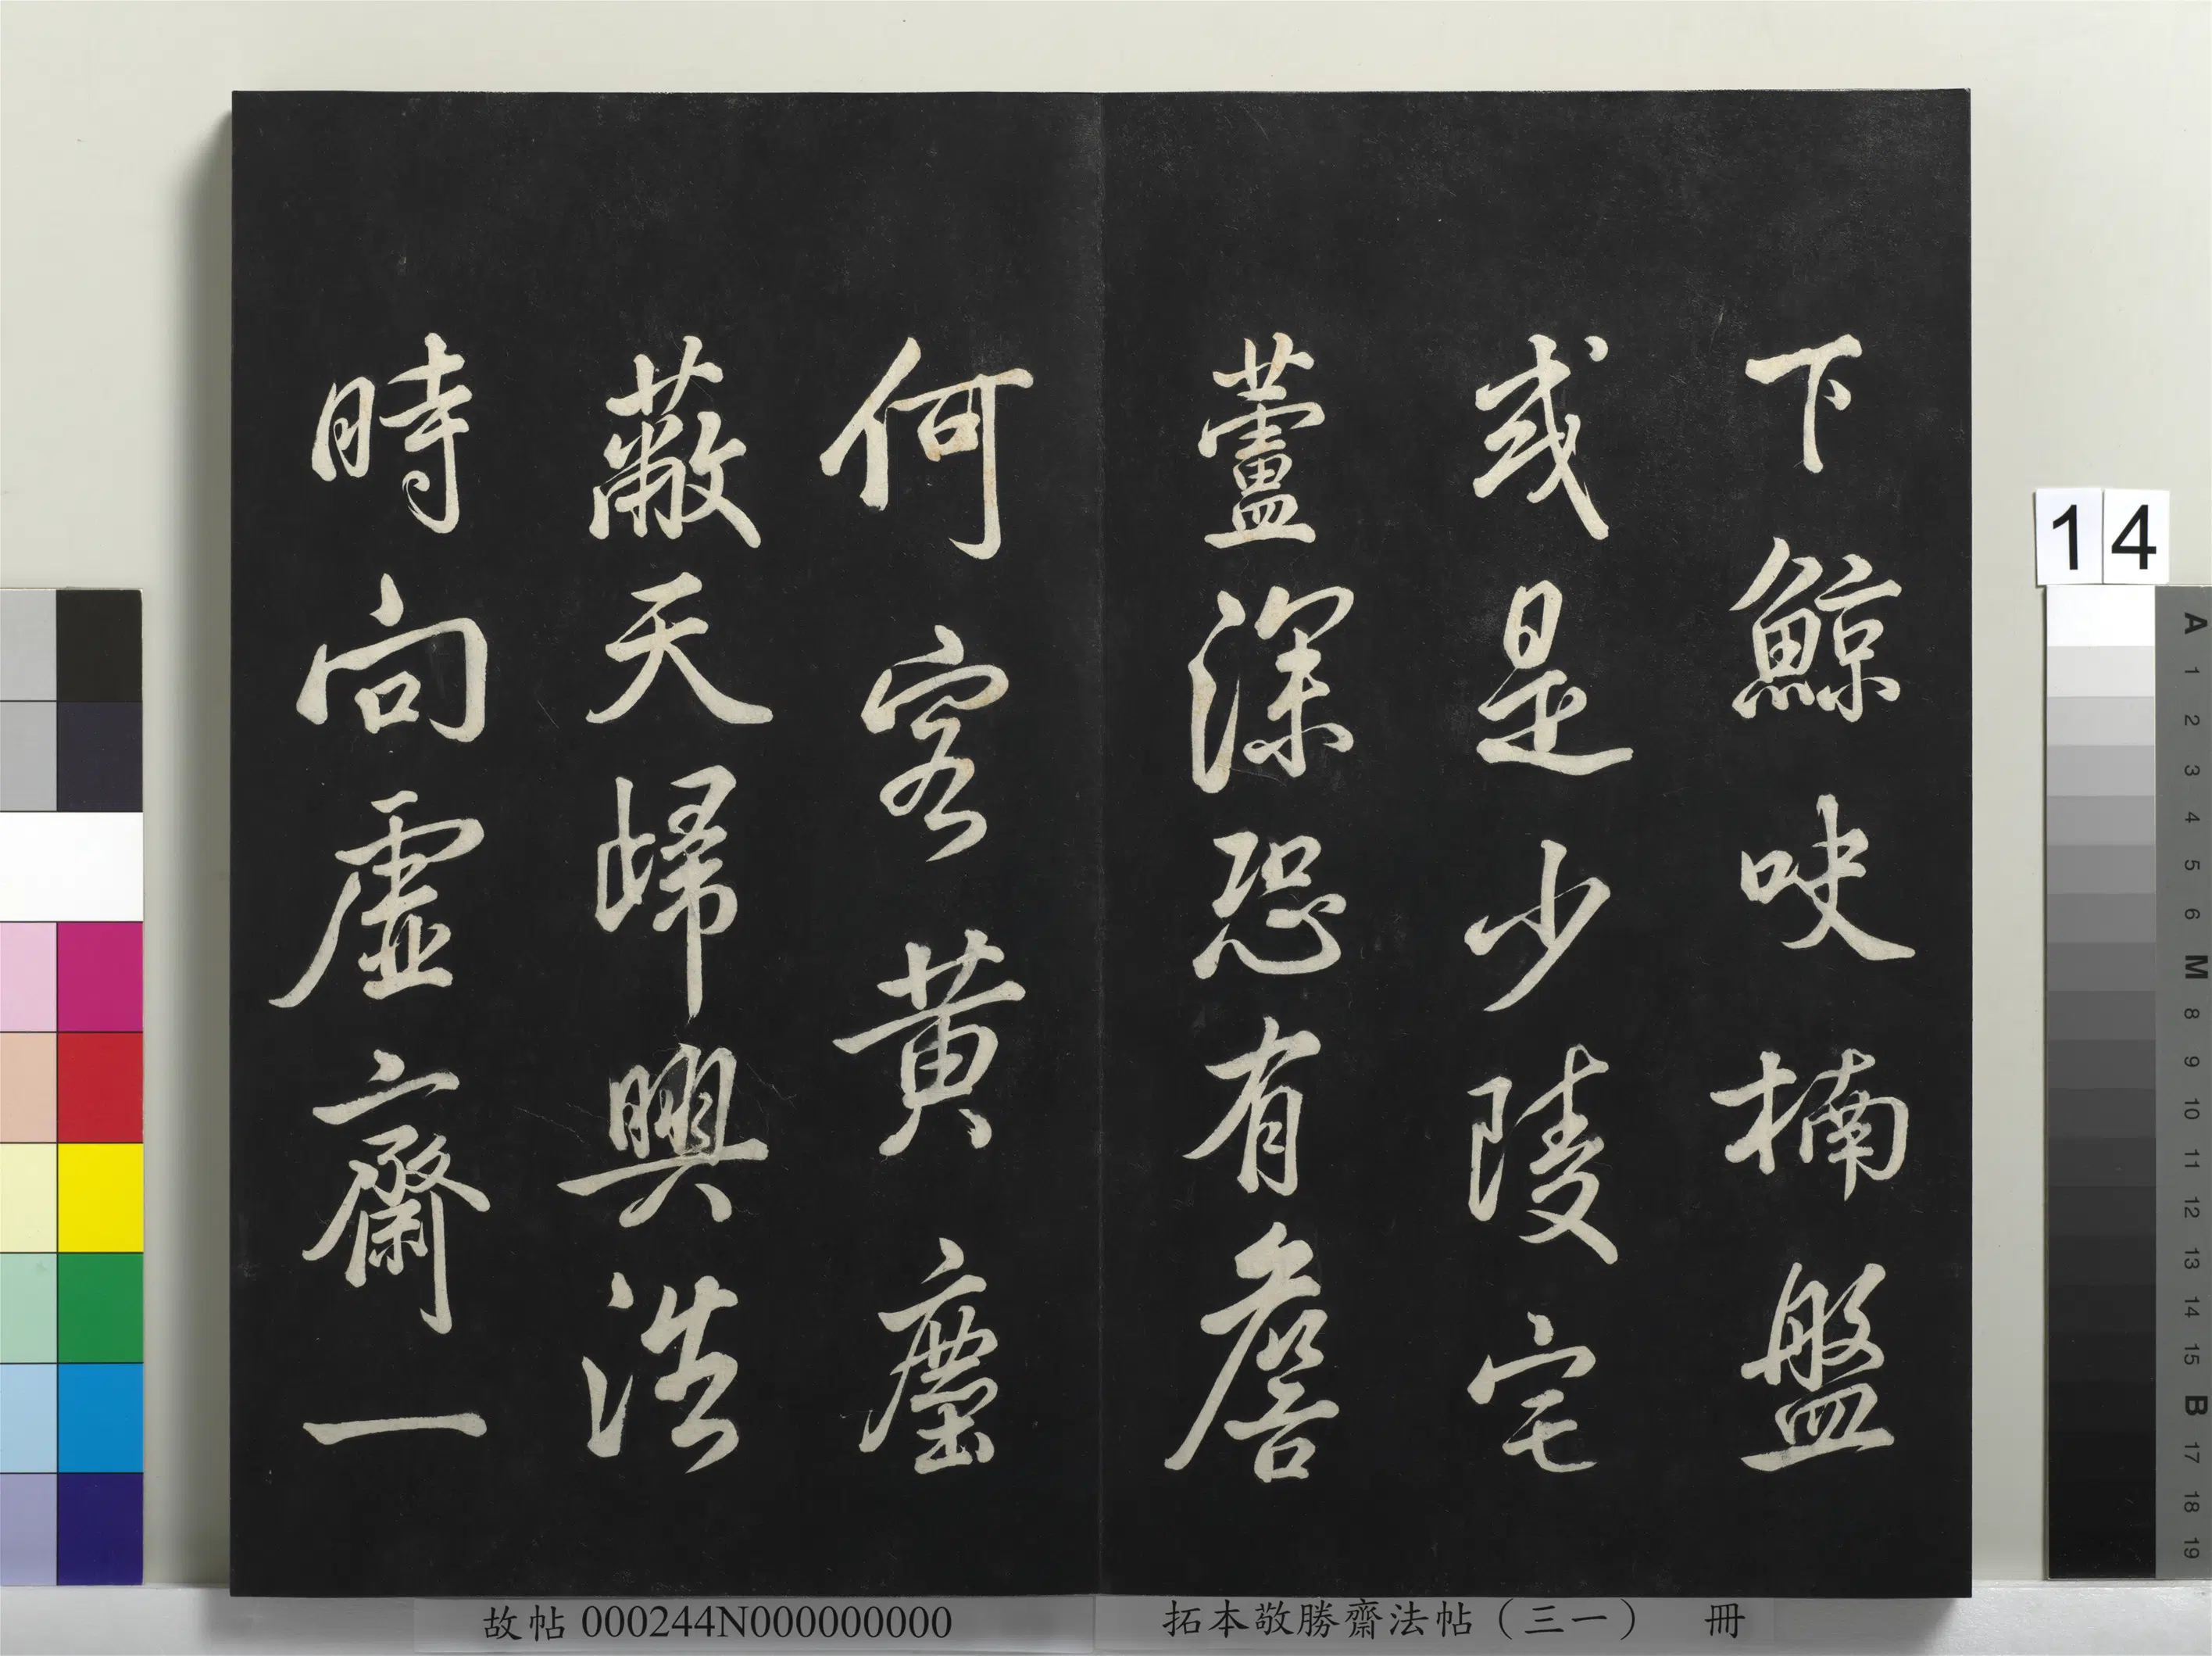 下鯨吷楠盤
或是少陵宅
蘆深恐有詹
何客黄塵
蔽天歸興浩
時向虛齋一
14
A 1 2 3 4 5 6 M 8 9 10 11 12 13 14 15 B 17 18 19
故帖 000244N000000000
拓本敬勝齋法帖（三一） 冊